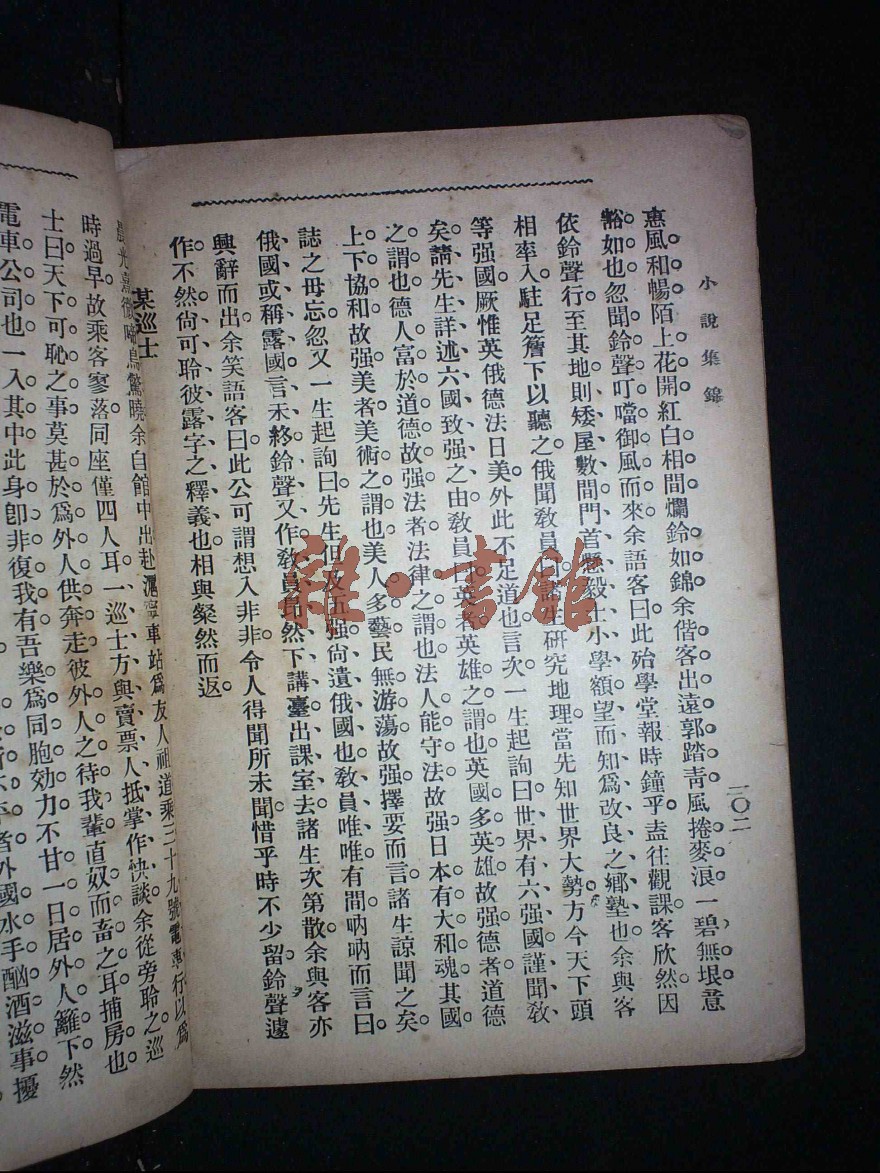 小說集錦
一〇二
惠風和暢陌上花開紅白相間爛鈴如錦余偕客出遠郭踏靑風捲麥浪一碧無垠意
豁如也忽聞鈴聲叮噹御風而來余語客曰此殆學堂報時鐘乎盍往觀課客欣然因
依鈴聲行至其地則矮屋數間門首懸毅士小學額望而知爲改良之鄕塾也余與客
相率入駐足簷下以聽之俄聞敎員曰諸生硏究地理當先知世界大勢方今天下頭
等强國厥惟英俄德法日美外此不足道也言次一生起詢曰世界有六强國謹聞敎
矣請先生詳述六國致强之由敎員曰英者英雄之謂也英國多英雄故强德者道德
之謂也德人富於道德故强法者法律之謂也法人能守法故强日本有大和魂其國
上下協和故强美者美術之謂也美人多藝民無游蕩故强擇要而言諸生諒聞之矣
誌之毋忘忽又一生起詢曰先生但及五强尙遺俄國也敎員唯唯有間吶吶而言曰
俄國或稱露國言未終鈴聲又作敎員昂然下講臺出課室去諸生次第散余與客亦
興辭而出余笑語客曰此公可謂想入非非令人得聞所未聞惜乎時不少留鈴聲遽
作不然尙可聆彼露字之釋義也相與粲然而返
某巡士
晨光熹微啼鳥驚曉余自館中出赴滬寧車站爲友人祖道乘三十九號電車行以爲
時過早故乘客寥落同座僅四人耳一巡士方與賣票人抵掌作快談余從旁聆之巡
士曰天下可恥之事莫甚於爲外人供奔走彼外人之待我輩直奴而畜之耳捕房也
電車公司也一入其中此身卽非復我有吾樂爲同胞効力不甘一日居外人籬下然
者外國水手酗酒滋事擾
雜·書館